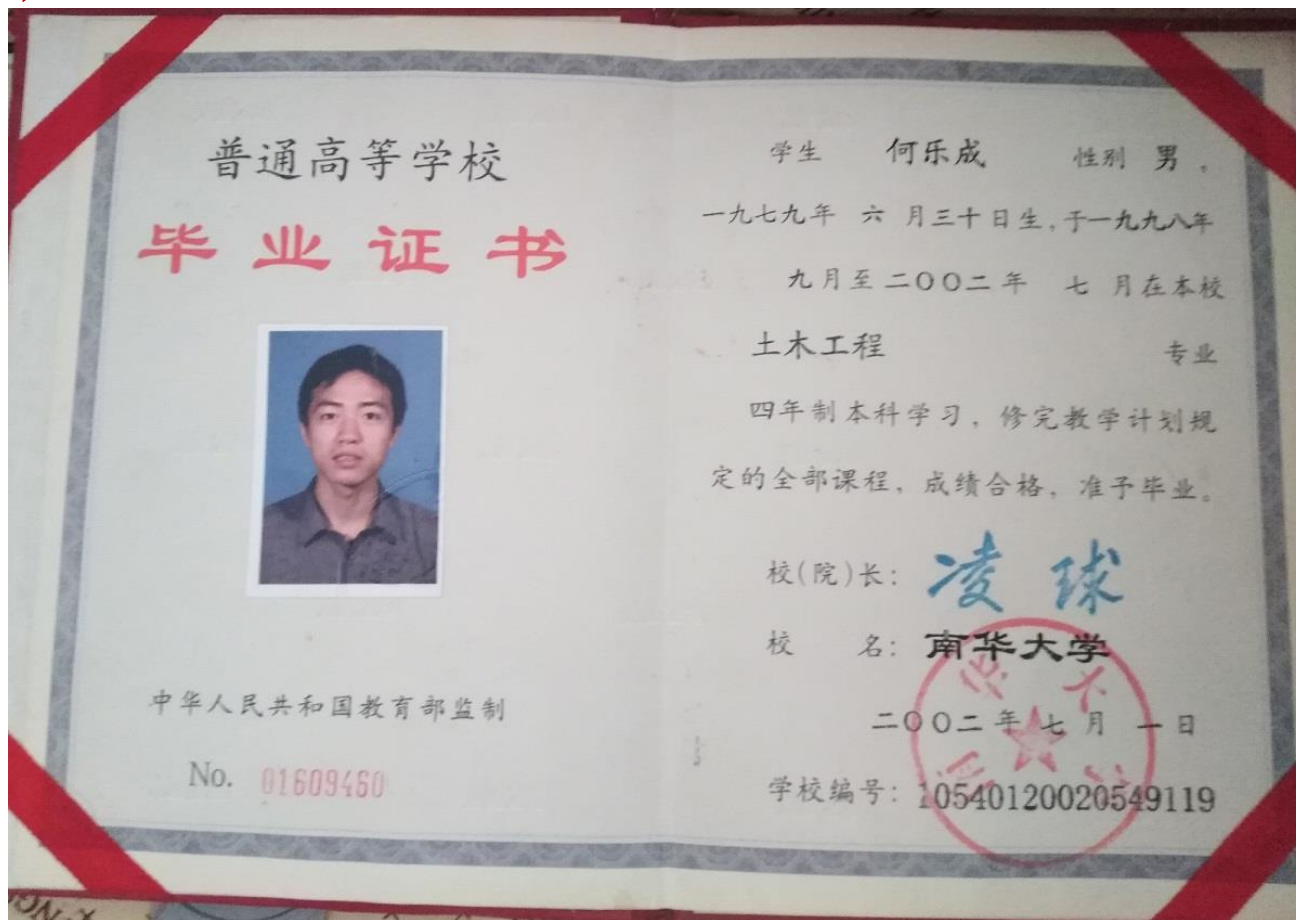 普通高等学校
毕业证书
中华人民共和国教育部监制
No. 01609460
学生 何乐成 性别 男，
一九七九年 六 月三十日生，于一九九八年
九月至二〇〇二年 七 月在本校
土木工程 专业
四年制本科学习，修完教学计划规
定的全部课程，成绩合格，准予毕业。
校(院)长： 凌球
校 名： 南华大学
二〇〇二年 七 月 一 日
学校编号： 10540120020549119